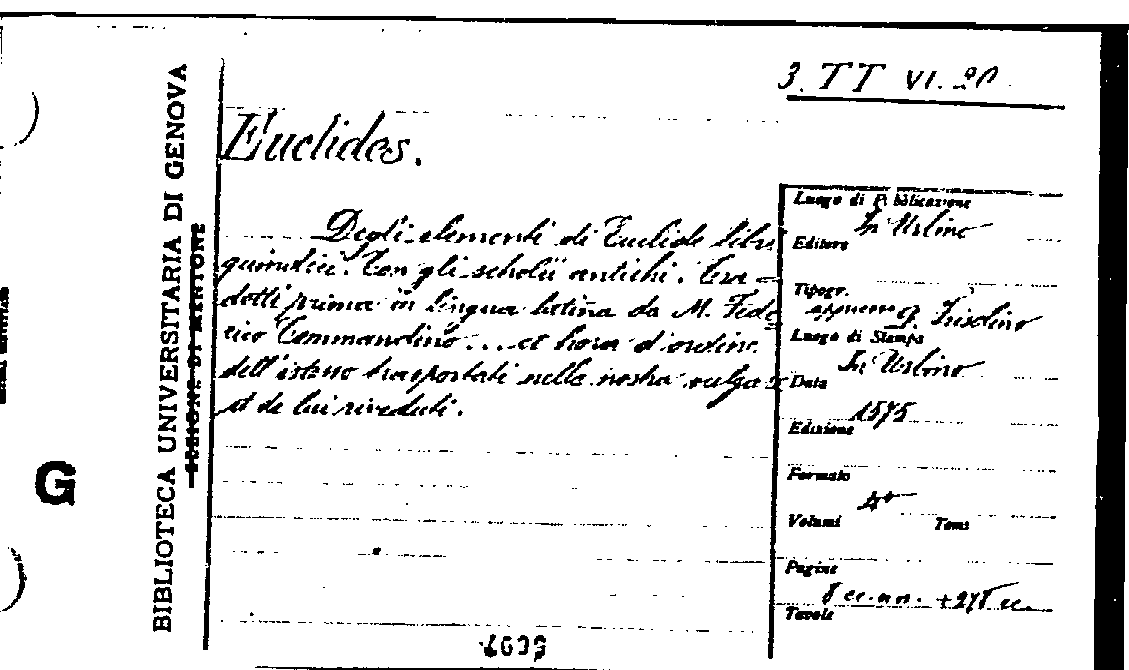 3. TT VI. 20
BIBLIOTECA UNIVERSITARIA DI GENOVA
SEZIONE DI MENTONE
Euclides.
Degli elementi di Euclide libri
quindici. Con gli scholii antichi. Tra-
dotti prima in lingua latina da M. Fede
rico Commandino... et hora d'ordine
dell'istesso trasportati nella nostra vulgare
et da lui riveduti.
Luogo di Pubblicazione
In Urbino
Editore
Tipogr.
appresso Frisolino
Luogo di Stampa
In Urbino
Data
1575
Edizione
Formato
4°
Volumi Tomi
Pagine
8 cc. nn. + 278 cc.
Tavole
G